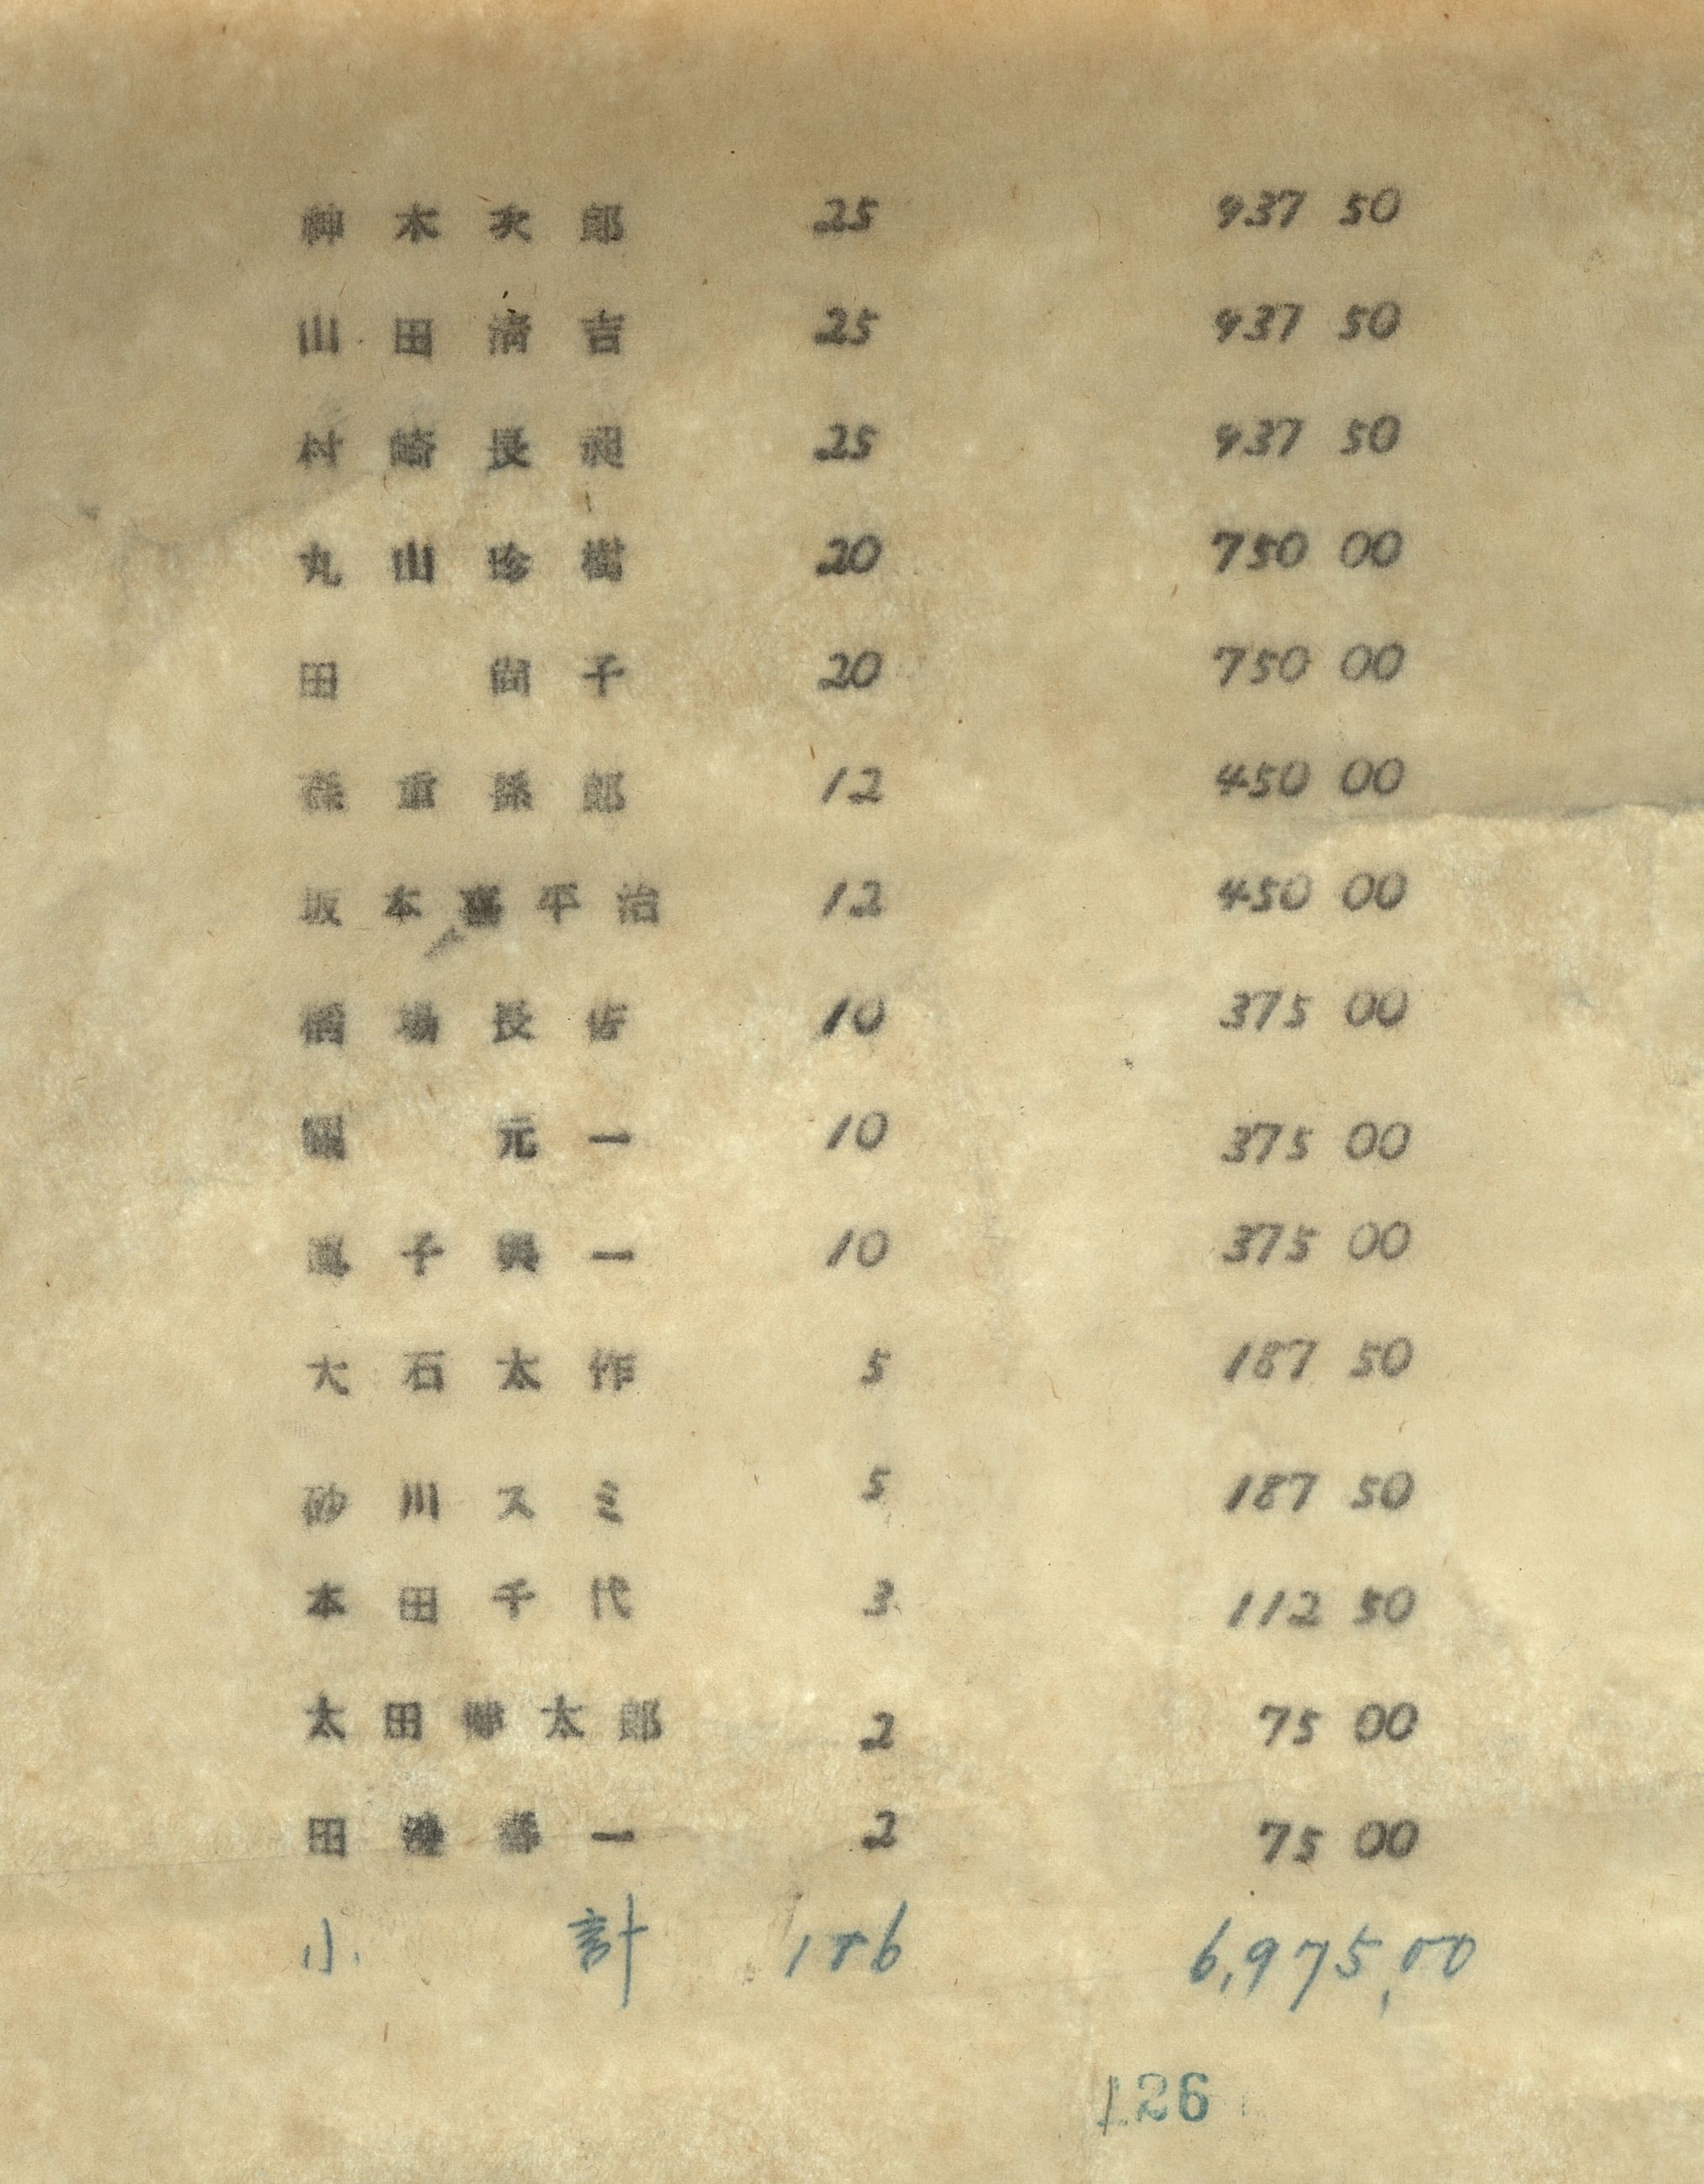 木次郎 25 937 50
山田清吉 25 937 50
村崎長 25 937 50
丸山珍樹 20 750 00
田 尚子 20 750 00
森重孫郎 12 450 00
坂本嘉平治 12 450 00
橋場長吉 10 375 00
元一 10 375 00
子興一 10 375 00
大石太作 5 187 50
砂川スミ 5 187 50
本田千代 3 112 50
太田 太郎 2 75 00
田 一 2 75 00
小計 186 6,975,00
126